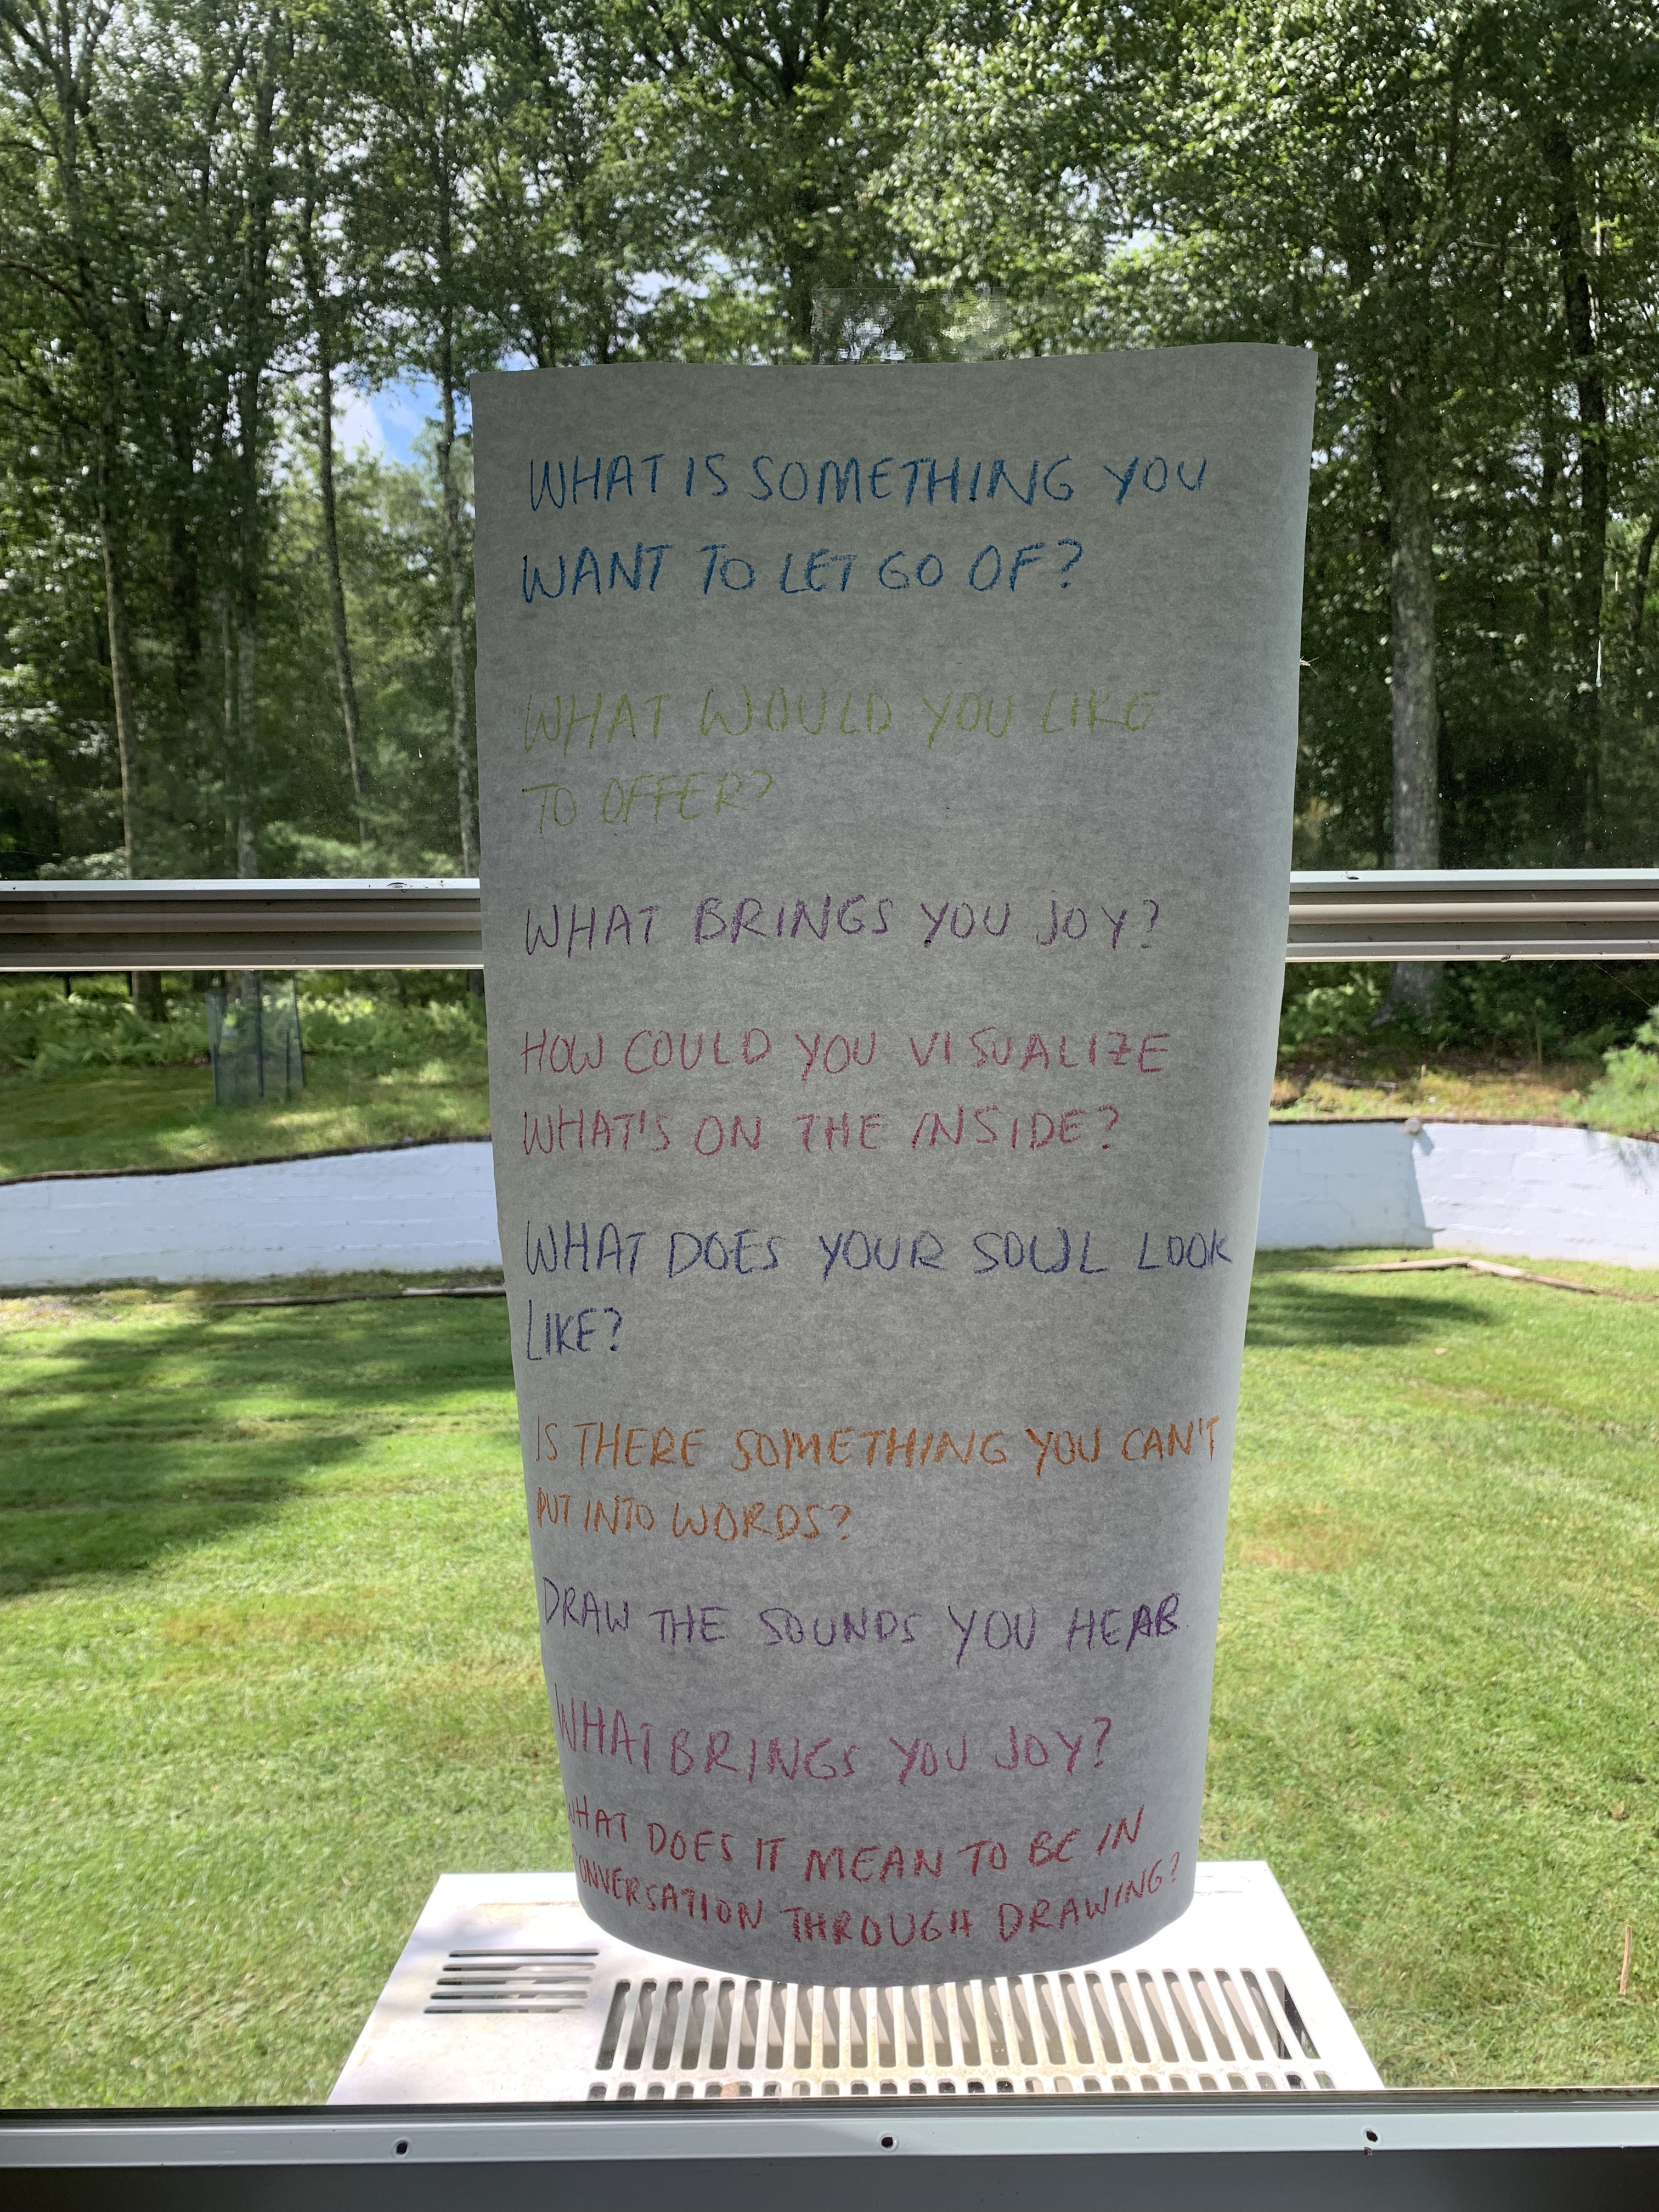 WHAT IS SOMETHING YOU
WANT TO LET GO OF?
WHAT WOULD YOU LIKE
TO OFFER?
WHAT BRINGS YOU JOY?
HOW COULD YOU VISUALIZE
WHAT'S ON THE INSIDE?
WHAT DOES YOUR SOUL LOOK
LIKE?
IS THERE SOMETHING YOU CAN'T
PUT INTO WORDS?
DRAW THE SOUNDS YOU HEAR
WHAT BRINGS YOU JOY?
WHAT DOES IT MEAN TO BE IN
CONVERSATION THROUGH DRAWING?